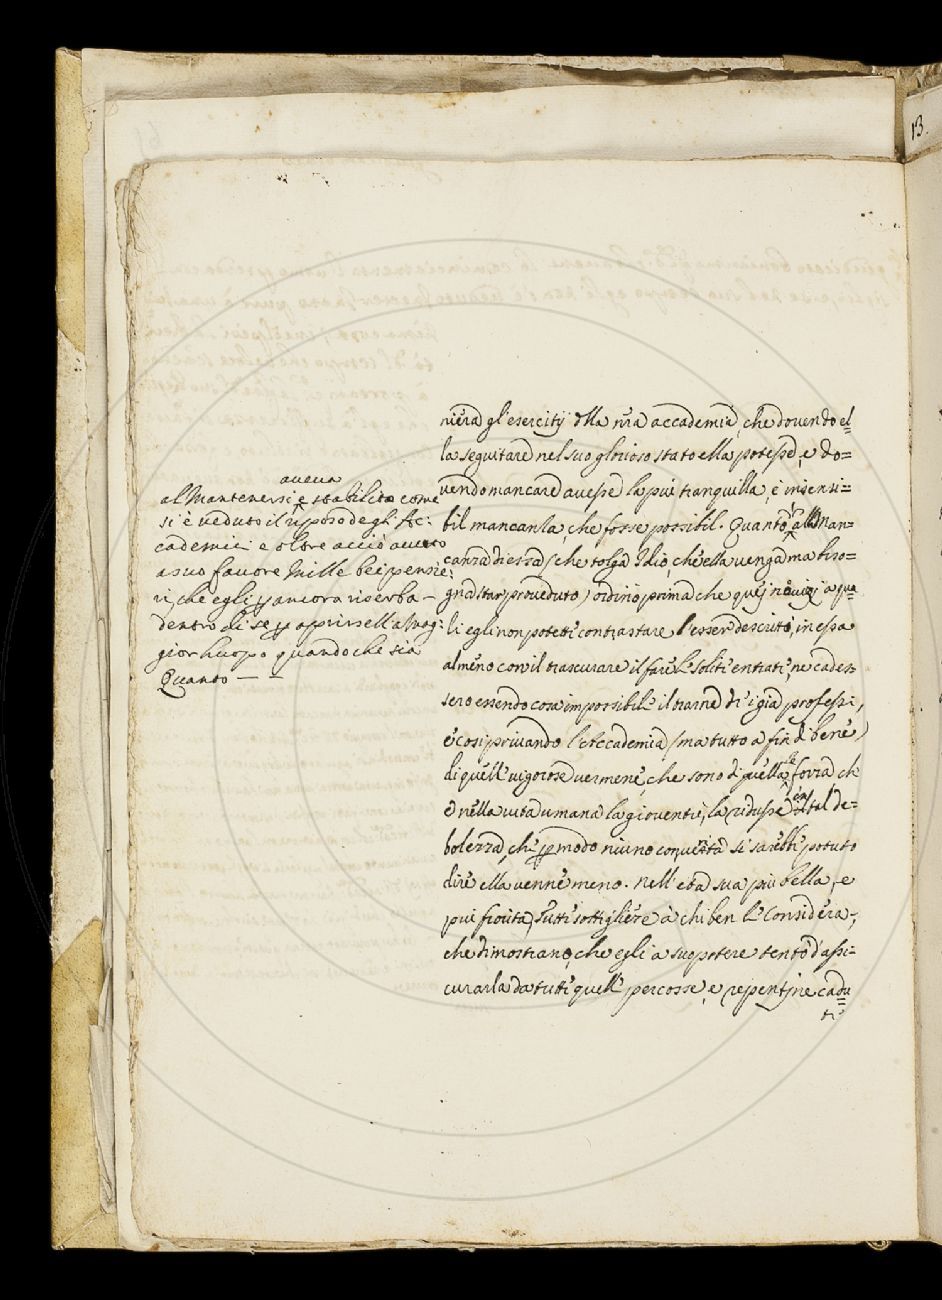 13.
aveva
al Mantenersi è stabilito come
si è veduto il riposo degli Ac:
cademici e oltre acciò
a suo favore Mille bei pensie:
ri, che egli p ancora riserba-
dentro di se p aprirsell a Mag:
gior huopo quando che sia
Quanto — —
niera gl' esercitij dlla nra accademia, che dovendo el=
la seguitare nel suo glorioso stato ella potesse, e do=
vendo mancare avesse la più tranquilla, e insensi=
bil mancanza, che fosse possibil. Quanto, alla Man=
canza di essa (che tolga Idio, che ella venga ma biso=
gna star proveduto) ordinò prima che quej novizj a qua
li egli non potette contrastare l'esser descritti, in essa
almeno con il trascurare il fare le solite entrate, ne cades=
sero essendo cosa impossibile il trarne di i già professi,
e così privando l'Accademia (ma tutto a fin di bene)
di quelle vigorose vermene, che sono di quella le forza ch
è nella vita umana la gioventù, la ridusse in tal de=
bolezza, che p modo niuno conquista si sarebbe potuto
dire ella venne meno. Nell' età sua più bella, e
più fiorita, Tutte sottigliezze à chi ben le Considera,
che dimostrano, che egli a suo potere tentò d'assi=
curarla da tutte quelle percosse, e repentine cadu=
te